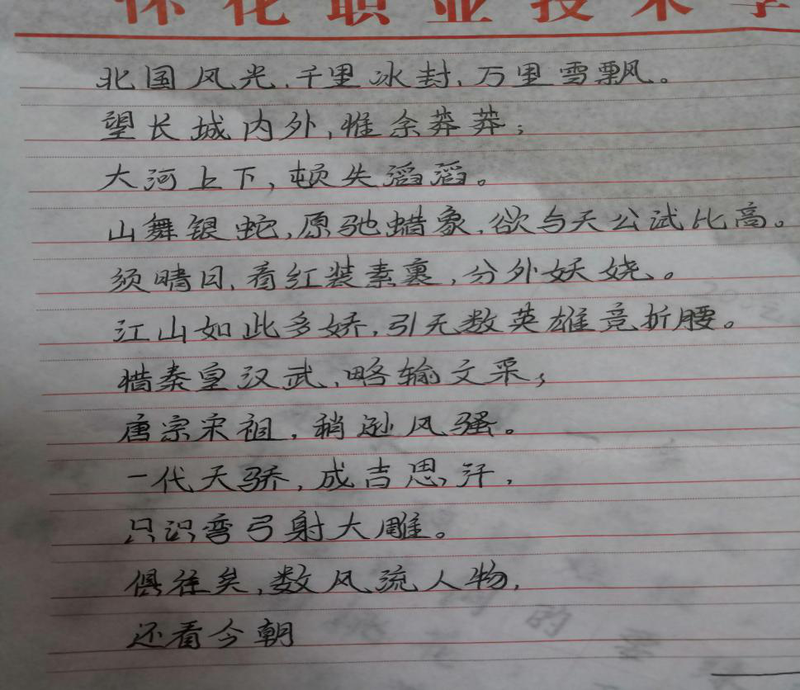 怀化职业技术学
北国风光,千里冰封,万里雪飘。
望长城内外,惟余莽莽;
大河上下,顿失滔滔。
山舞银蛇,原驰蜡象,欲与天公试比高。
须晴日,看红装素裹,分外妖娆。
江山如此多娇,引无数英雄竞折腰。
惜秦皇汉武,略输文采;
唐宗宋祖,稍逊风骚。
一代天骄,成吉思汗,
只识弯弓射大雕。
俱往矣,数风流人物,
还看今朝